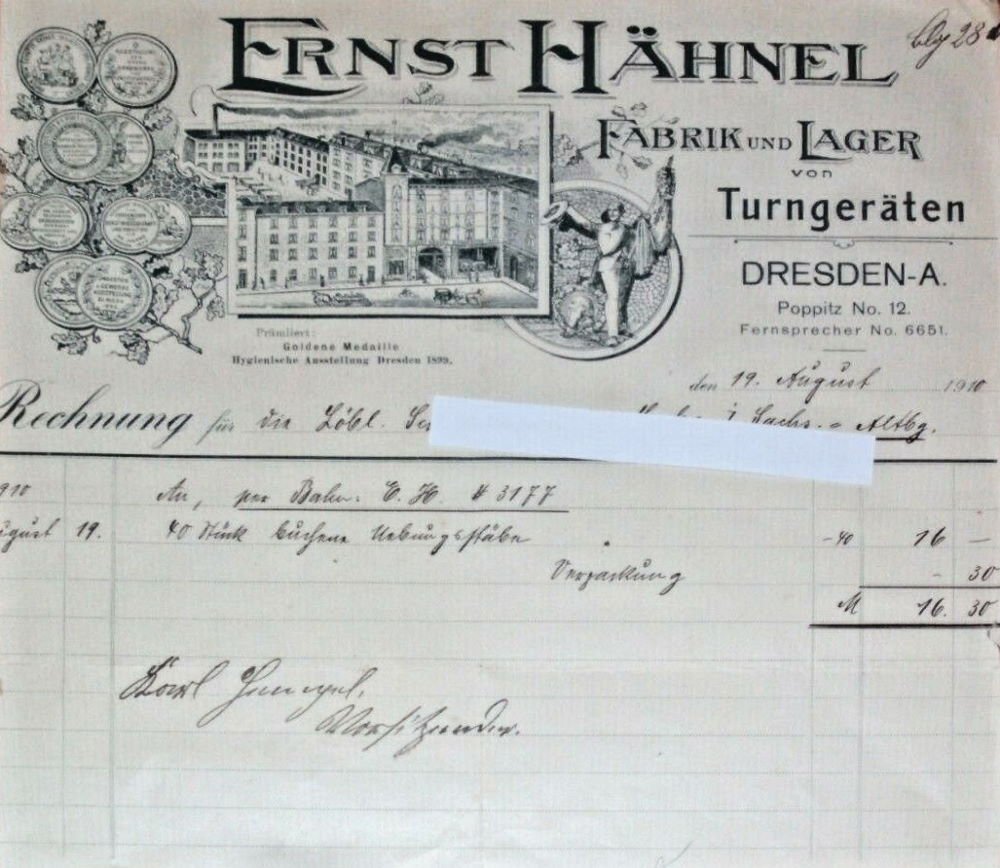 ERNST HÄHNEL
blg 28
FABRIK UND LAGER
von
Turngeräten
DRESDEN-A.
Poppitz No. 12.
Fernsprecher No. 6651.
Prämiiert:
Goldene Medaille
Hygienische Ausstellung Dresden 1899.
den 19. August 1910
Rechnung für die Löbl. Sachs.- Altbg.
910 An, per Bahn: E. H. # 3177
gust 19. 40 Stück buchene Uebungsstäbe -40 16 —
Verpackung - 30
M 16. 30
Karl
Vorsitzender.